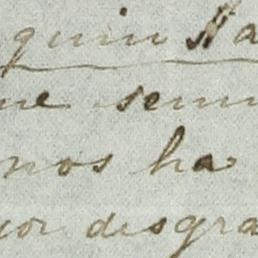 quin Na
ue semu
nos ha
con disgra